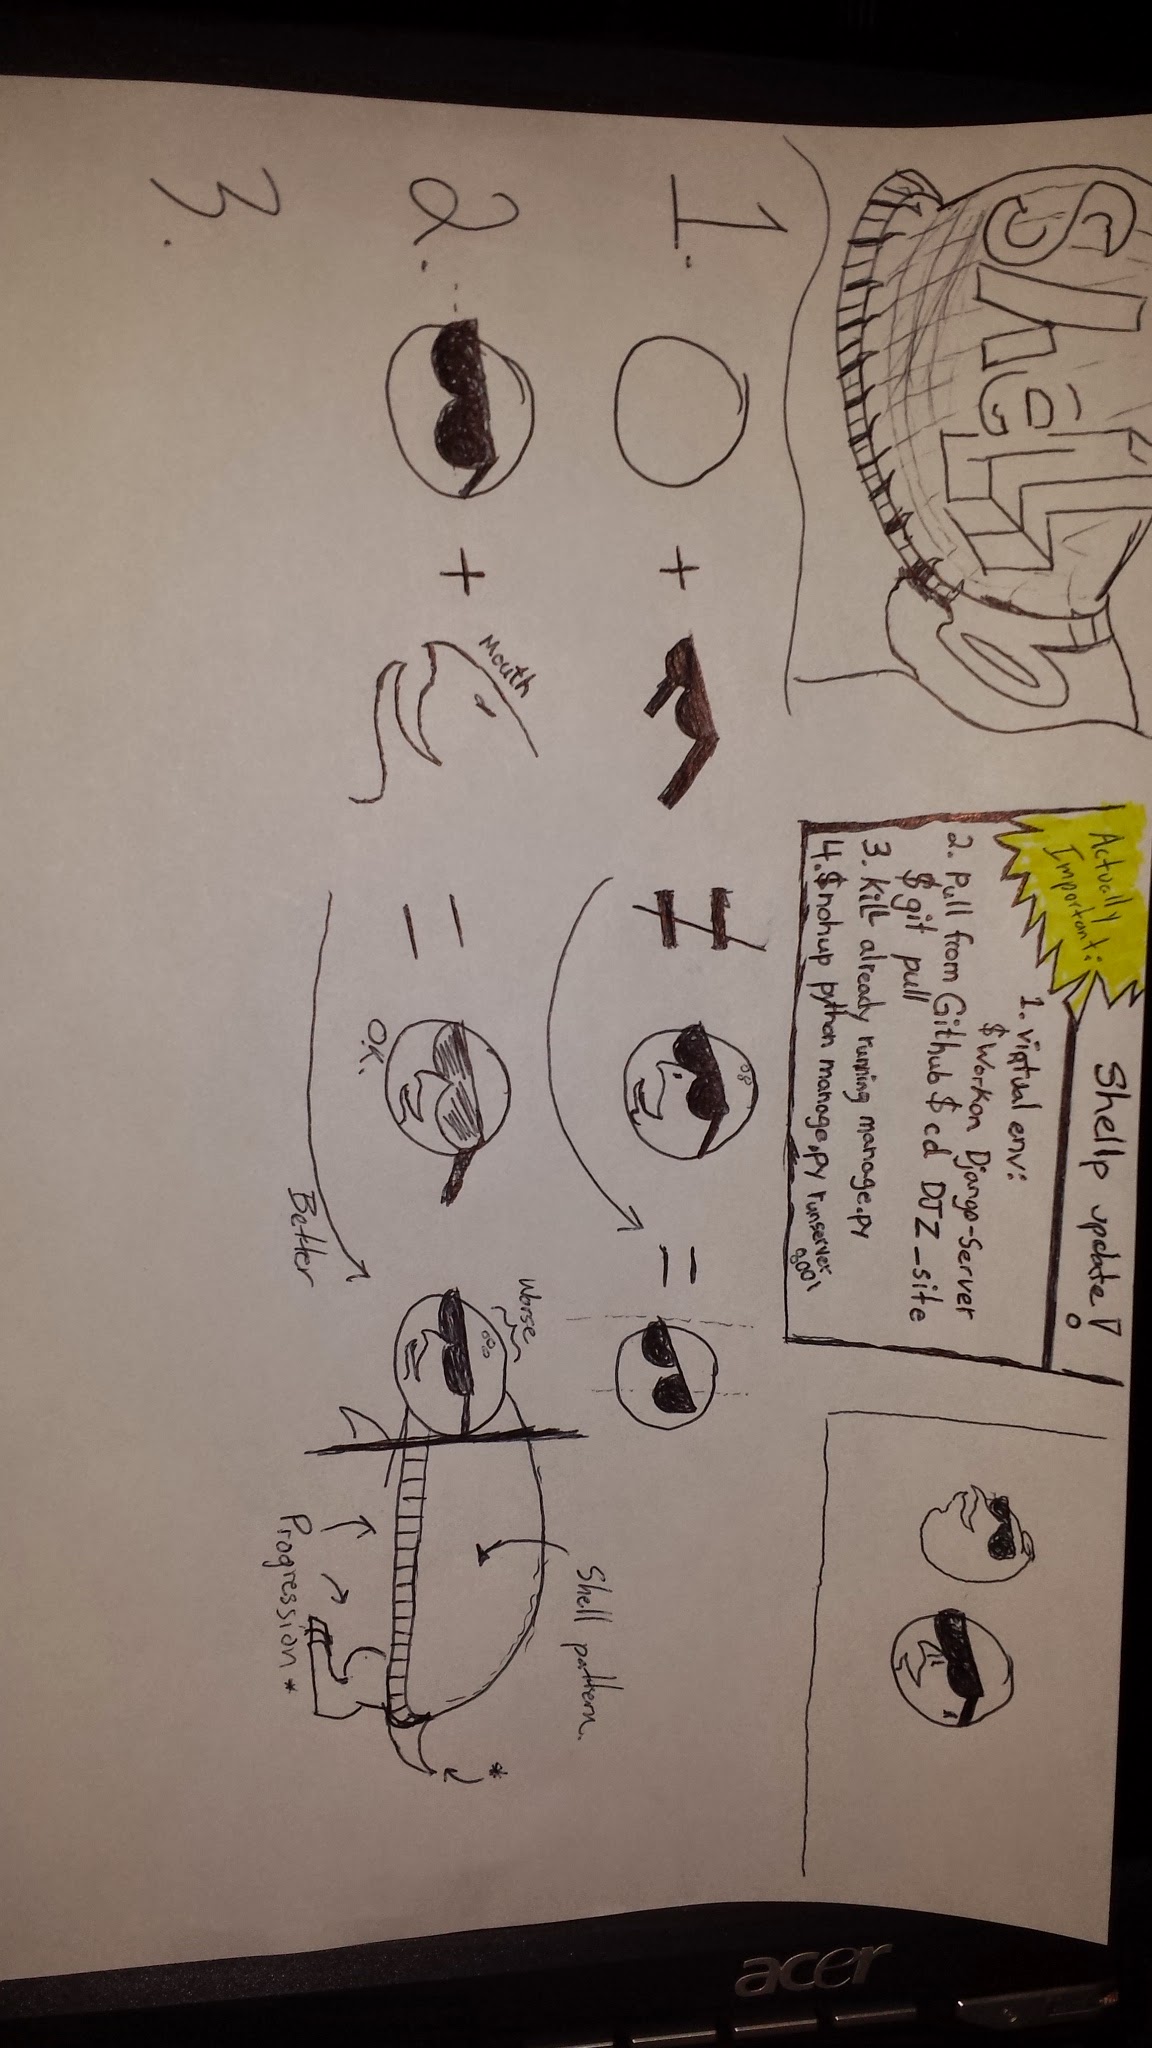 Shell
Shellp update!
Actually
Important:
1. virtual env:
$ workon Django-Server
2. pull from Github $ cd DJZ_site
$ git pull
3. kill already running manage.py
4. $ nohup python manage.py runserver
8001
1.
2.
Mouth
O.K.
Worse
Better
Shell pattern.
Progression*
*
3.
acer